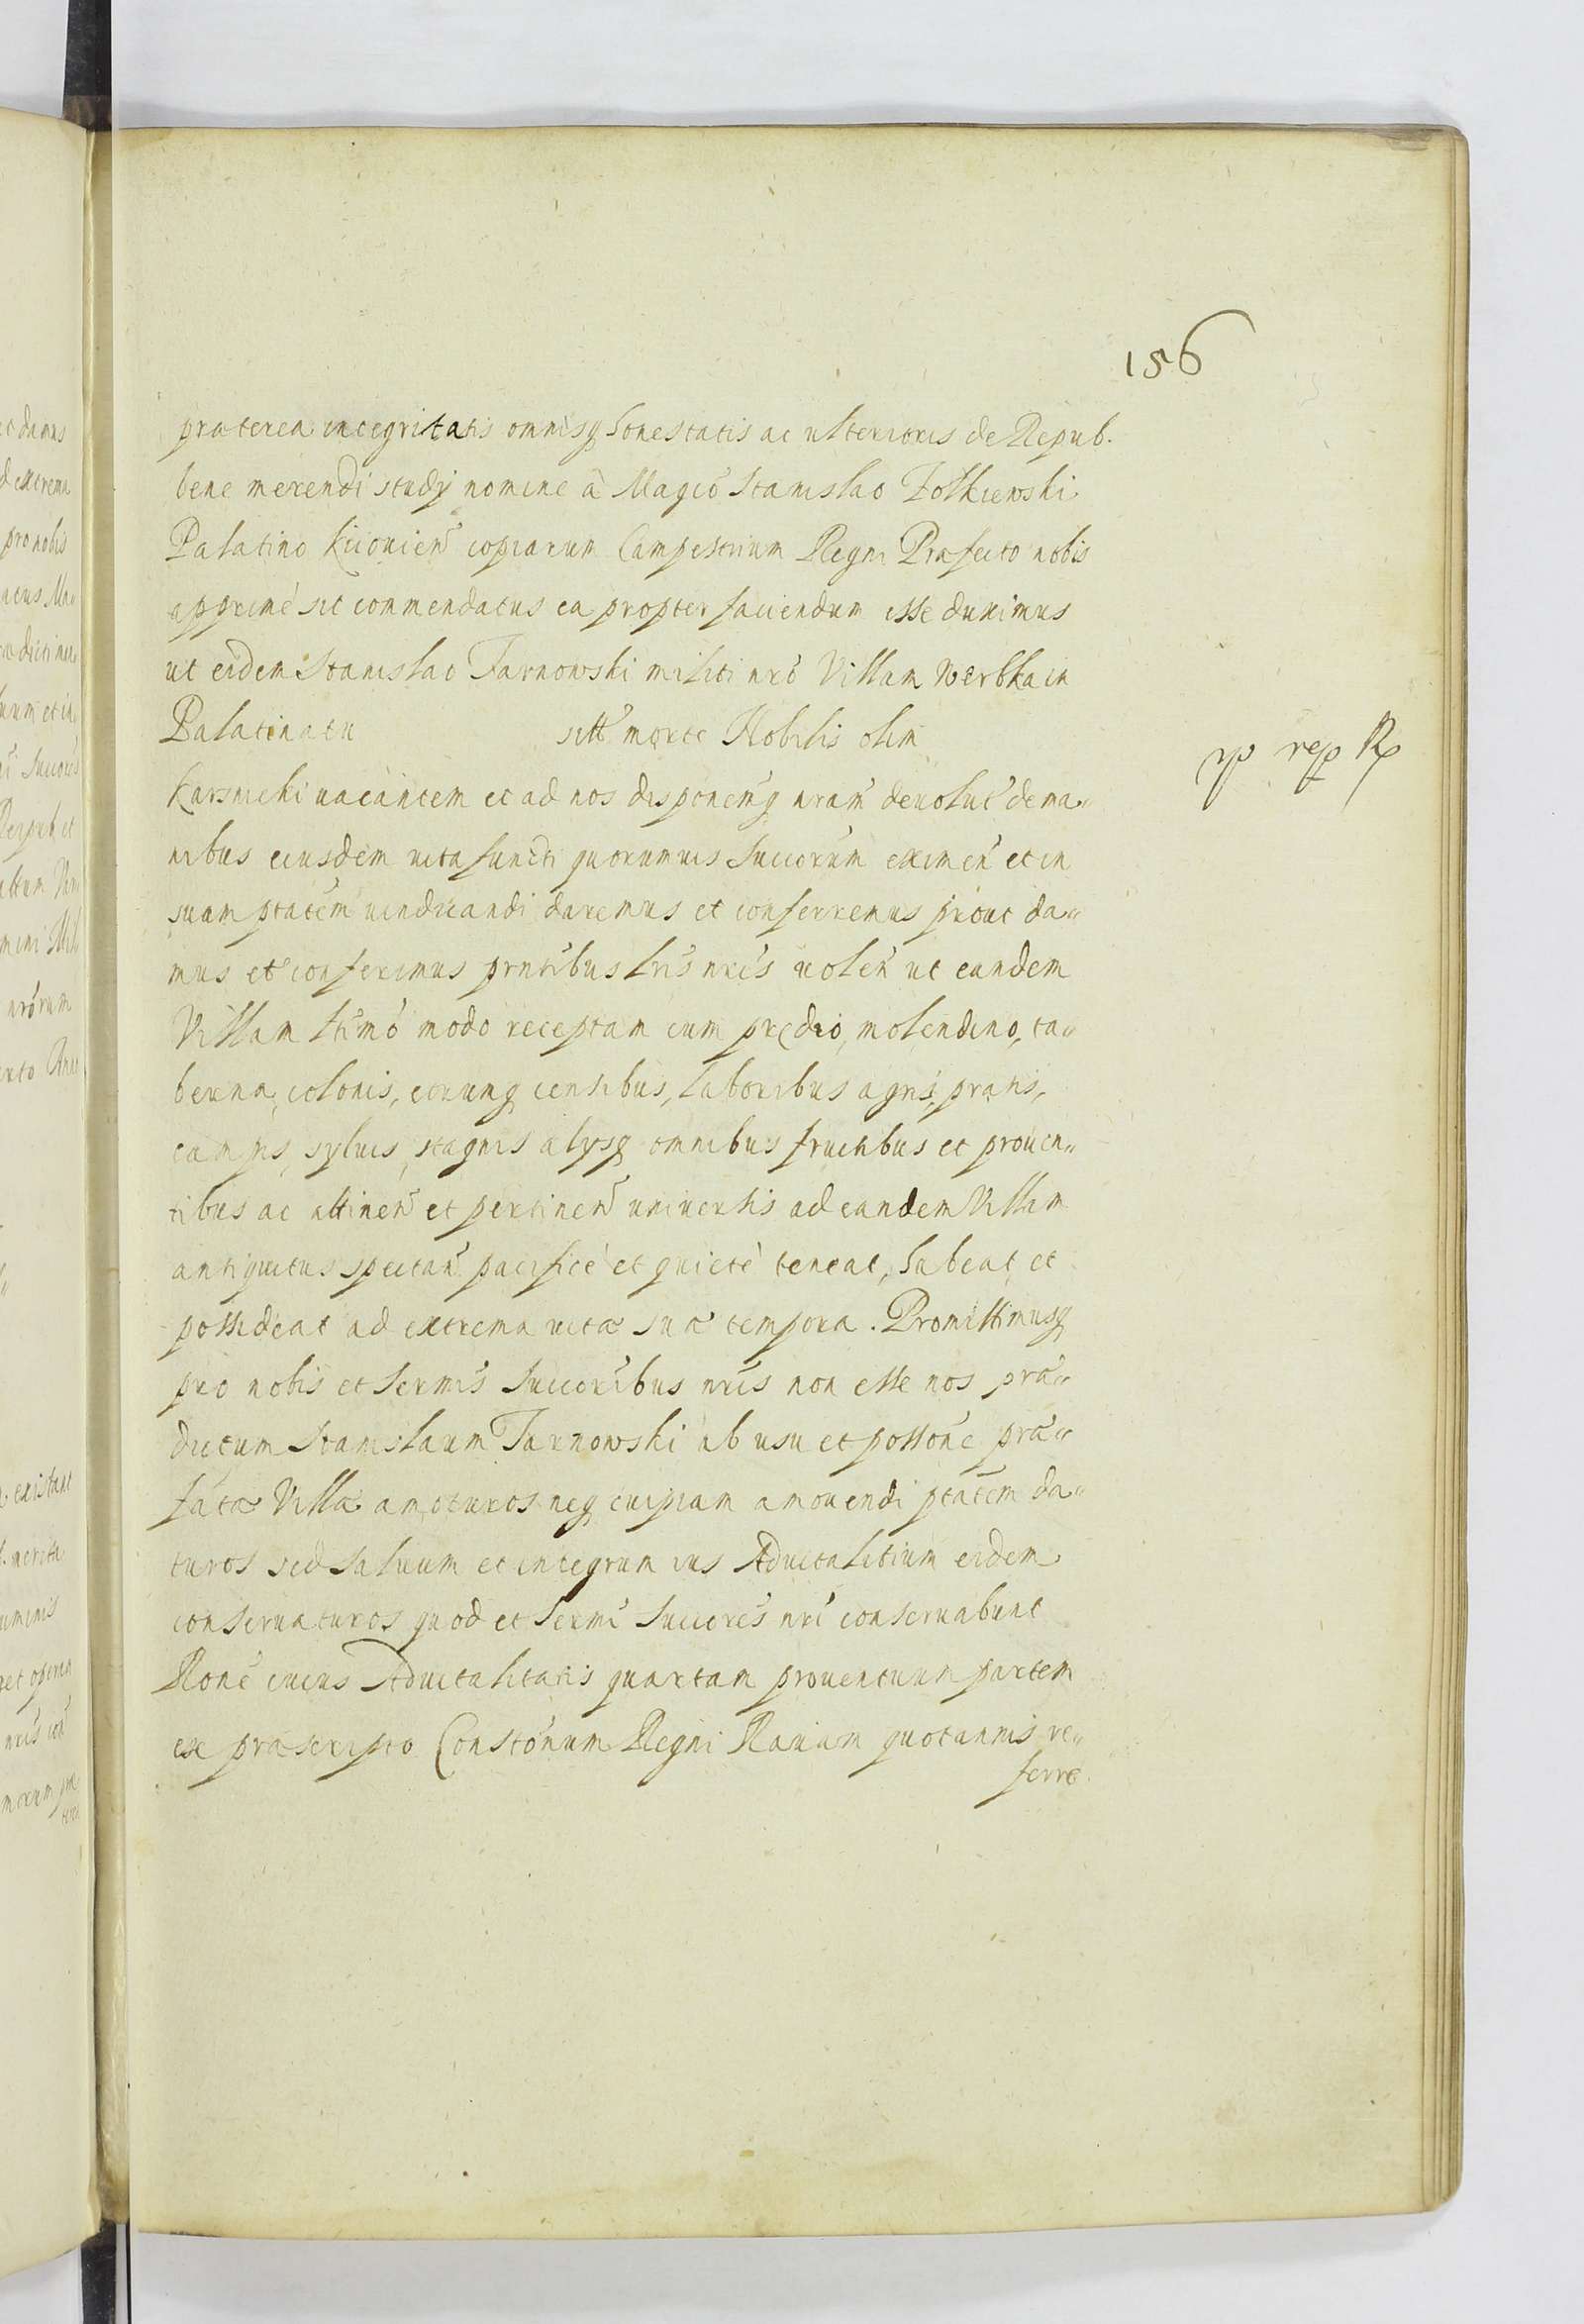 156
præterea integritatis omnisq honestatis ac ulterioris de Repub.
bene merendi studij nomine à Magco Stanislao Zolkiewski
Palatino Kiiouien copiarum Campestrium Regni Præfecto nobis
apprimé sit commendatus ea propter faciendum esse duximus
ut eidem Stanislao Tarnowski militi nro Villam Werbka in
Palatinatu morte Nobilis olim
Karsnicki uacantem et ad nos disponemq nram deuolut de ma„
nibus eiusdem uita functi quorumuis Succorum eximen et in
suam ptatem uendicandi daremus et conferremus prout da„
mus et conferimus pntibus lris nris uolen ut eandem
Villam ltimo modo receptam cum prędio, molendino, ta„
berna, colonis, eorunq censibus, laboribus agris, pratis,
campis, syluis, stagnis alysq omnibus fructibus et prouen„
tibus ac attinen et pertinen uniuersis ad eandem Villam
antiquitus spectan pacificè et quietè teneat, habeat et
possideat ad extrema uitæ suæ tempora. Promittimusq
pro nobis et Sermis Succoribus nris non esse nos præ„
dictum Stanislaum Tarnowski ab usu et possone præ„
fatæ Villæ amoturos neq cuipiam amouendi ptatem da„
turos sed saluum et integrum ius Aduitalitium eidem
conseruaturos quod et Sermi Succores nri conseruabunt
Rone cuius Aduitalitatis quartam prouentuum partem
ex præscripto Constonum Regni Rauam quotannis re„
ferre